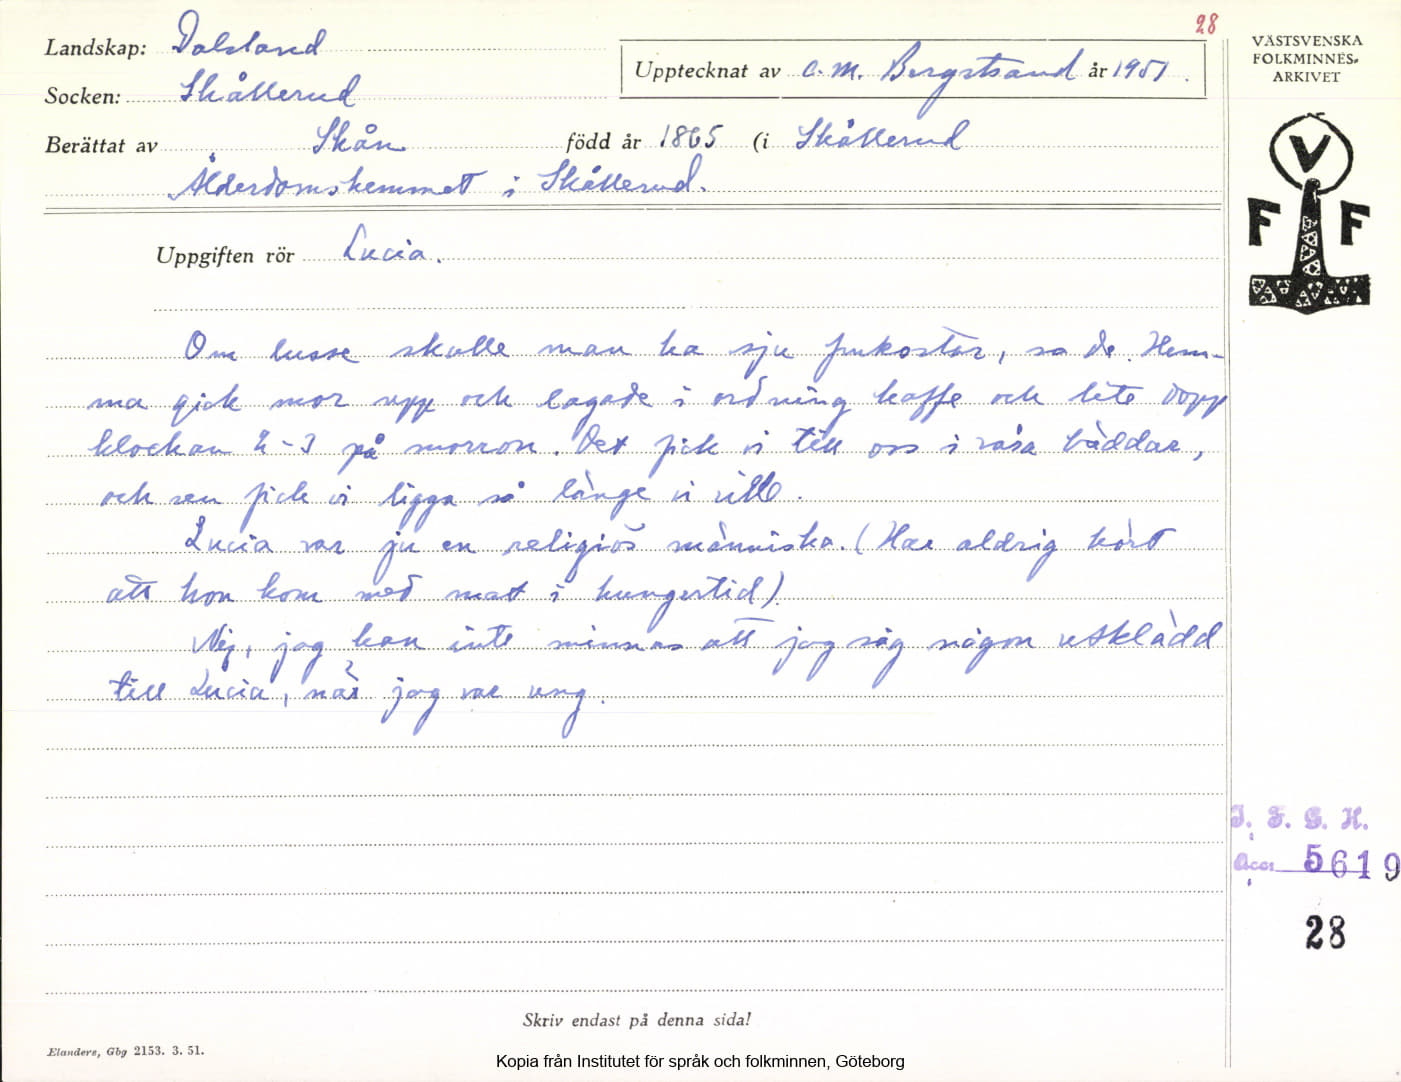 28
Landskap: Dalsland
Upptecknat av C. M. Bergstrand år 1951.
Socken: Skållerud
Berättat av Skån född år 1865 (i Skållerud
Ålderdomshemmet i Skållerud.
Uppgiften rör Lucia.
Om lusse skulle man ha sju frukostar, sa de. Hem-
ma gick mor upp och lagade i ordning kaffe och lite dopp
klockan 2-3 på morron. Det fick vi till oss i våra bäddar,
och sen fick vi ligga så länge vi ville.
Lucia var ju en religiös människa. (Har aldrig hört
att hon kom med mat i hungertid).
Nej, jag kan inte minnas att jag såg någon utklädd
till Lucia, när jag var ung.
Skriv endast på denna sida!
Elanders, Gbg 2153. 3. 51.
VÄSTSVENSKA
FOLKMINNES-
ARKIVET
V
F F
I. F. G. H.
Acc. 5619
28
Kopia från Institutet för språk och folkminnen, Göteborg